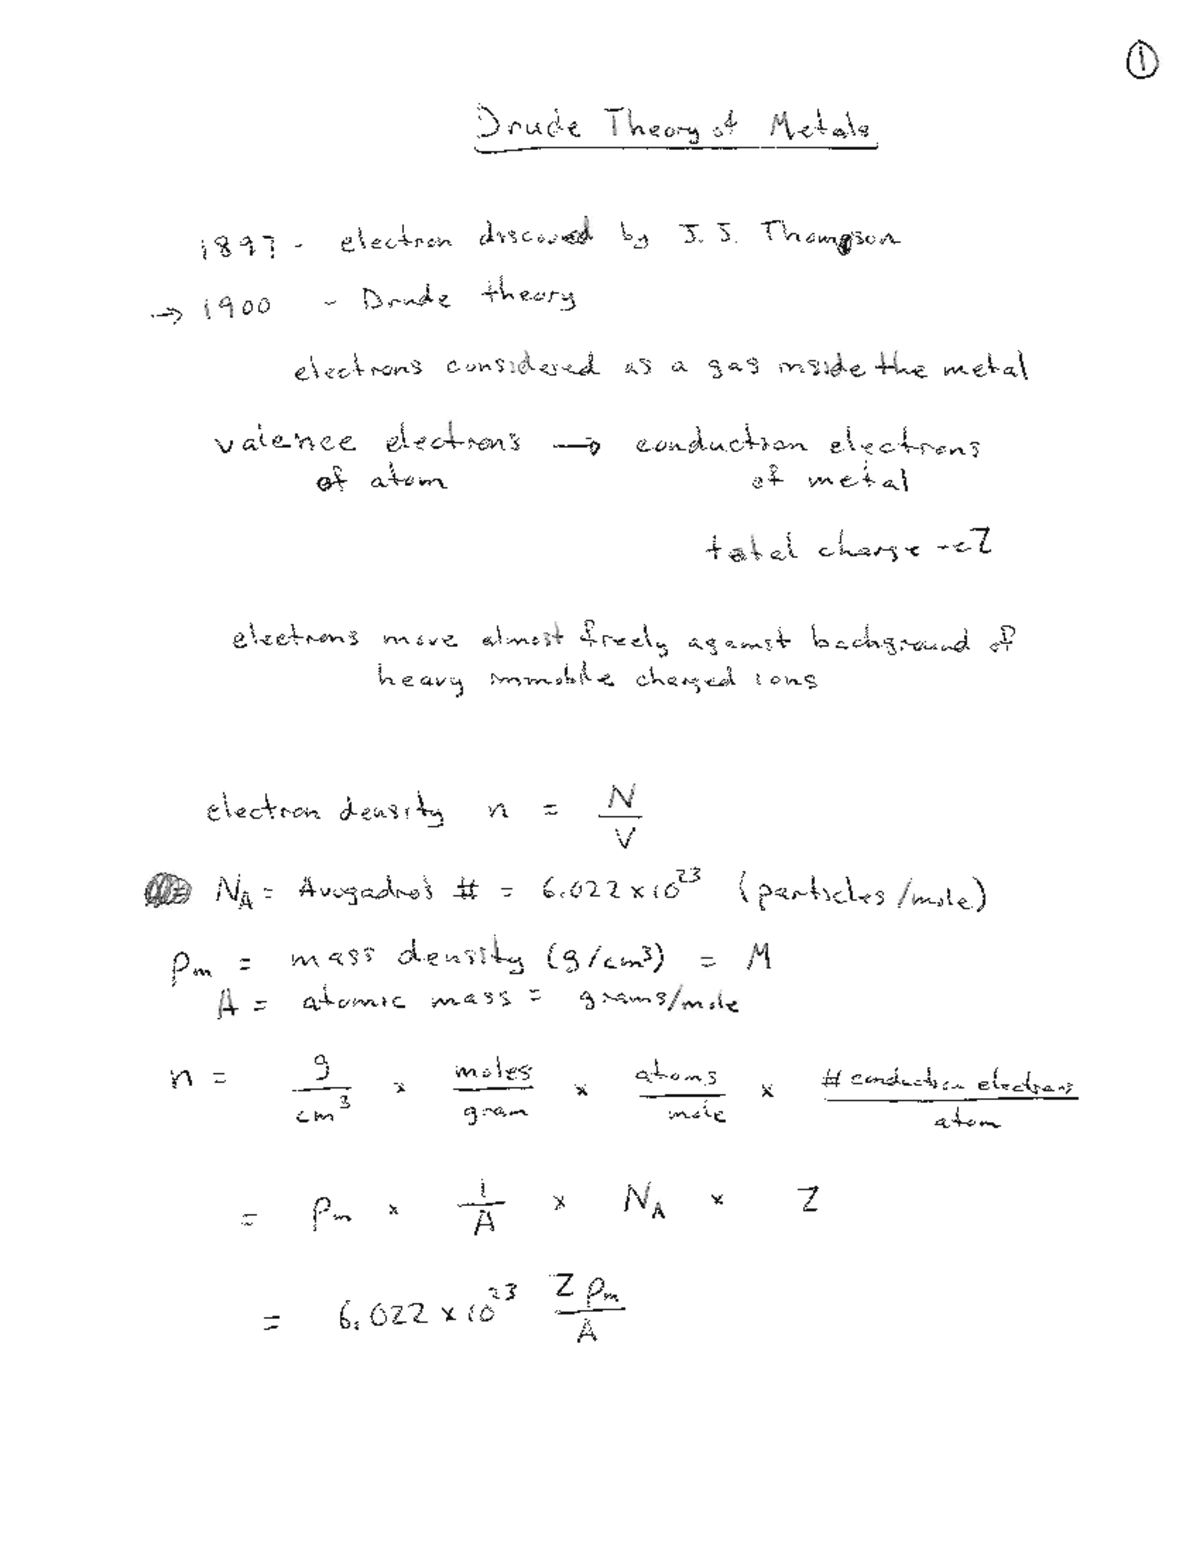 ①
Drude Theory of Metals
1897 - electron discovered by J. J. Thompson
→ 1900 - Drude theory
electrons considered as a gas inside the metal
valence electrons → conduction electrons
of atom of metal
total charge -eZ
electrons move almost freely against background of
heavy immobile charged ions
electron density n = N/V
N_A = Avogadro's # = 6.022 x 10^23 (particles/mole)
ρ_m = mass density (g/cm³) = M
A = atomic mass = grams/mole
n = g/cm³ x moles/gram x atoms/mole x # conduction electrons/atom
= ρ_m x 1/A x N_A x Z
= 6.022 x 10^23 Z ρ_m/A